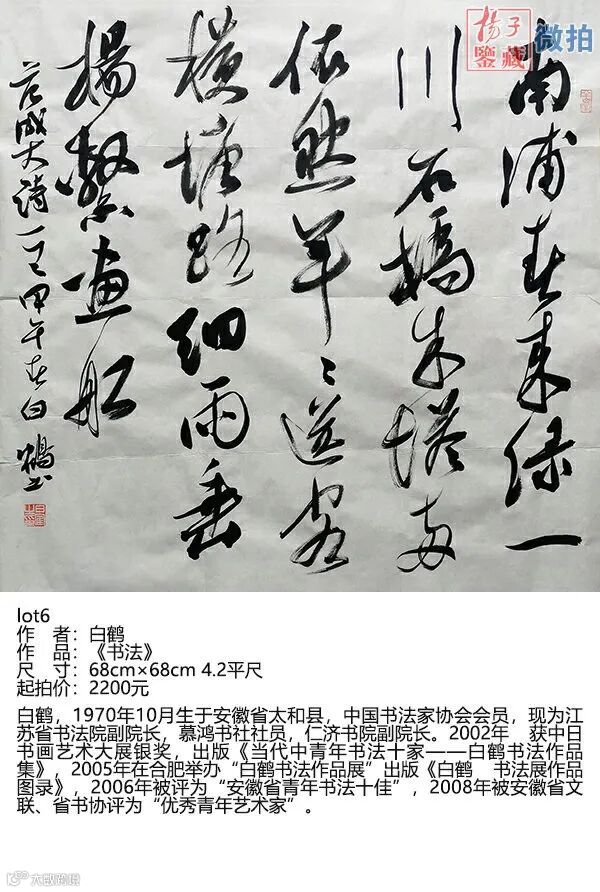 揚子
鑒藏
微拍
南浦春来绿一
川石橋朱塔两
依然年々送客
横塘路细雨垂
楊繫畫船
范成大诗一首甲午春白鶴书
lot6
作　者：白鹤
作　品：《书法》
尺　寸：68cm×68cm 4.2平尺
起拍价：2200元
白鹤，1970年10月生于安徽省太和县，中国书法家协会会员，现为江
苏省书法院副院长，慕鸿书社社员，仁济书院副院长。2002年　获中日
书画艺术大展银奖，出版《当代中青年书法十家——白鹤书法作品
集》，2005年在合肥举办“白鹤书法作品展”出版《白鹤　书法展作品
图录》，2006年被评为“安徽省青年书法十佳”，2008年被安徽省文
联、省书协评为“优秀青年艺术家”。
大数跨境